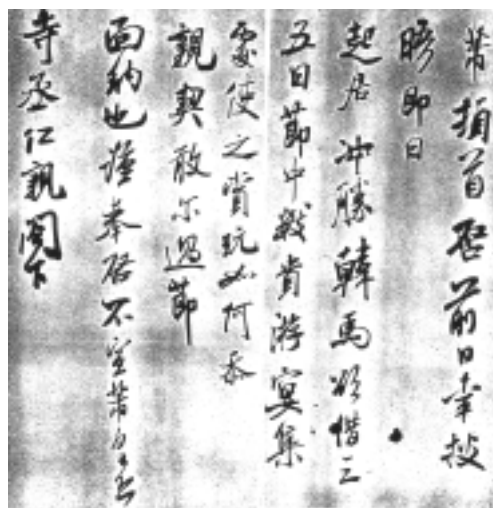 芾頓首启前日幸披
晤即日
起居冲勝韓馬欲借三
五日節中數貴游宴集
處使之賞玩如何忝
親契敢尔過節
面納也謹奉啓不宣芾頓首
寺丞仁親閣下